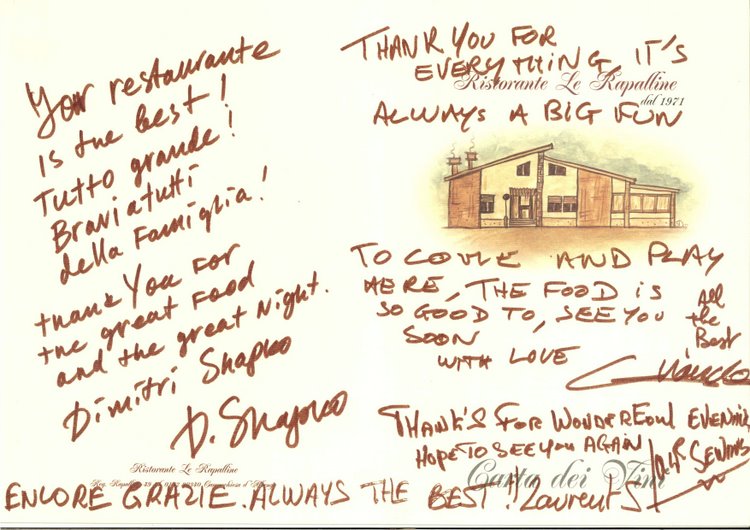 Your restaurante
is the best!
Tutto grande!
Braviatutti
della Famiglia!
thank You for
the great Food
and the great Night.
Dimitri Shapko
D. Shapko
Ristorante Le Rapalline
THANK YOU FOR
EVERYTHING, IT'S
Ristorante Le Rapalline
dal 1971
ALWAYS A BIG FUN
TO COME AND PLAY
HERE, THE FOOD IS
SO GOOD TO, SEE YOU
SOON
WITH LOVE
All
the
Best
THANK'S FOR WONDERFOUL EVENING
HOPE TO SEE YOU AGAIN
Carta dei Vini
ENCORE GRAZIE. ALWAYS THE BEST!! Laurent S